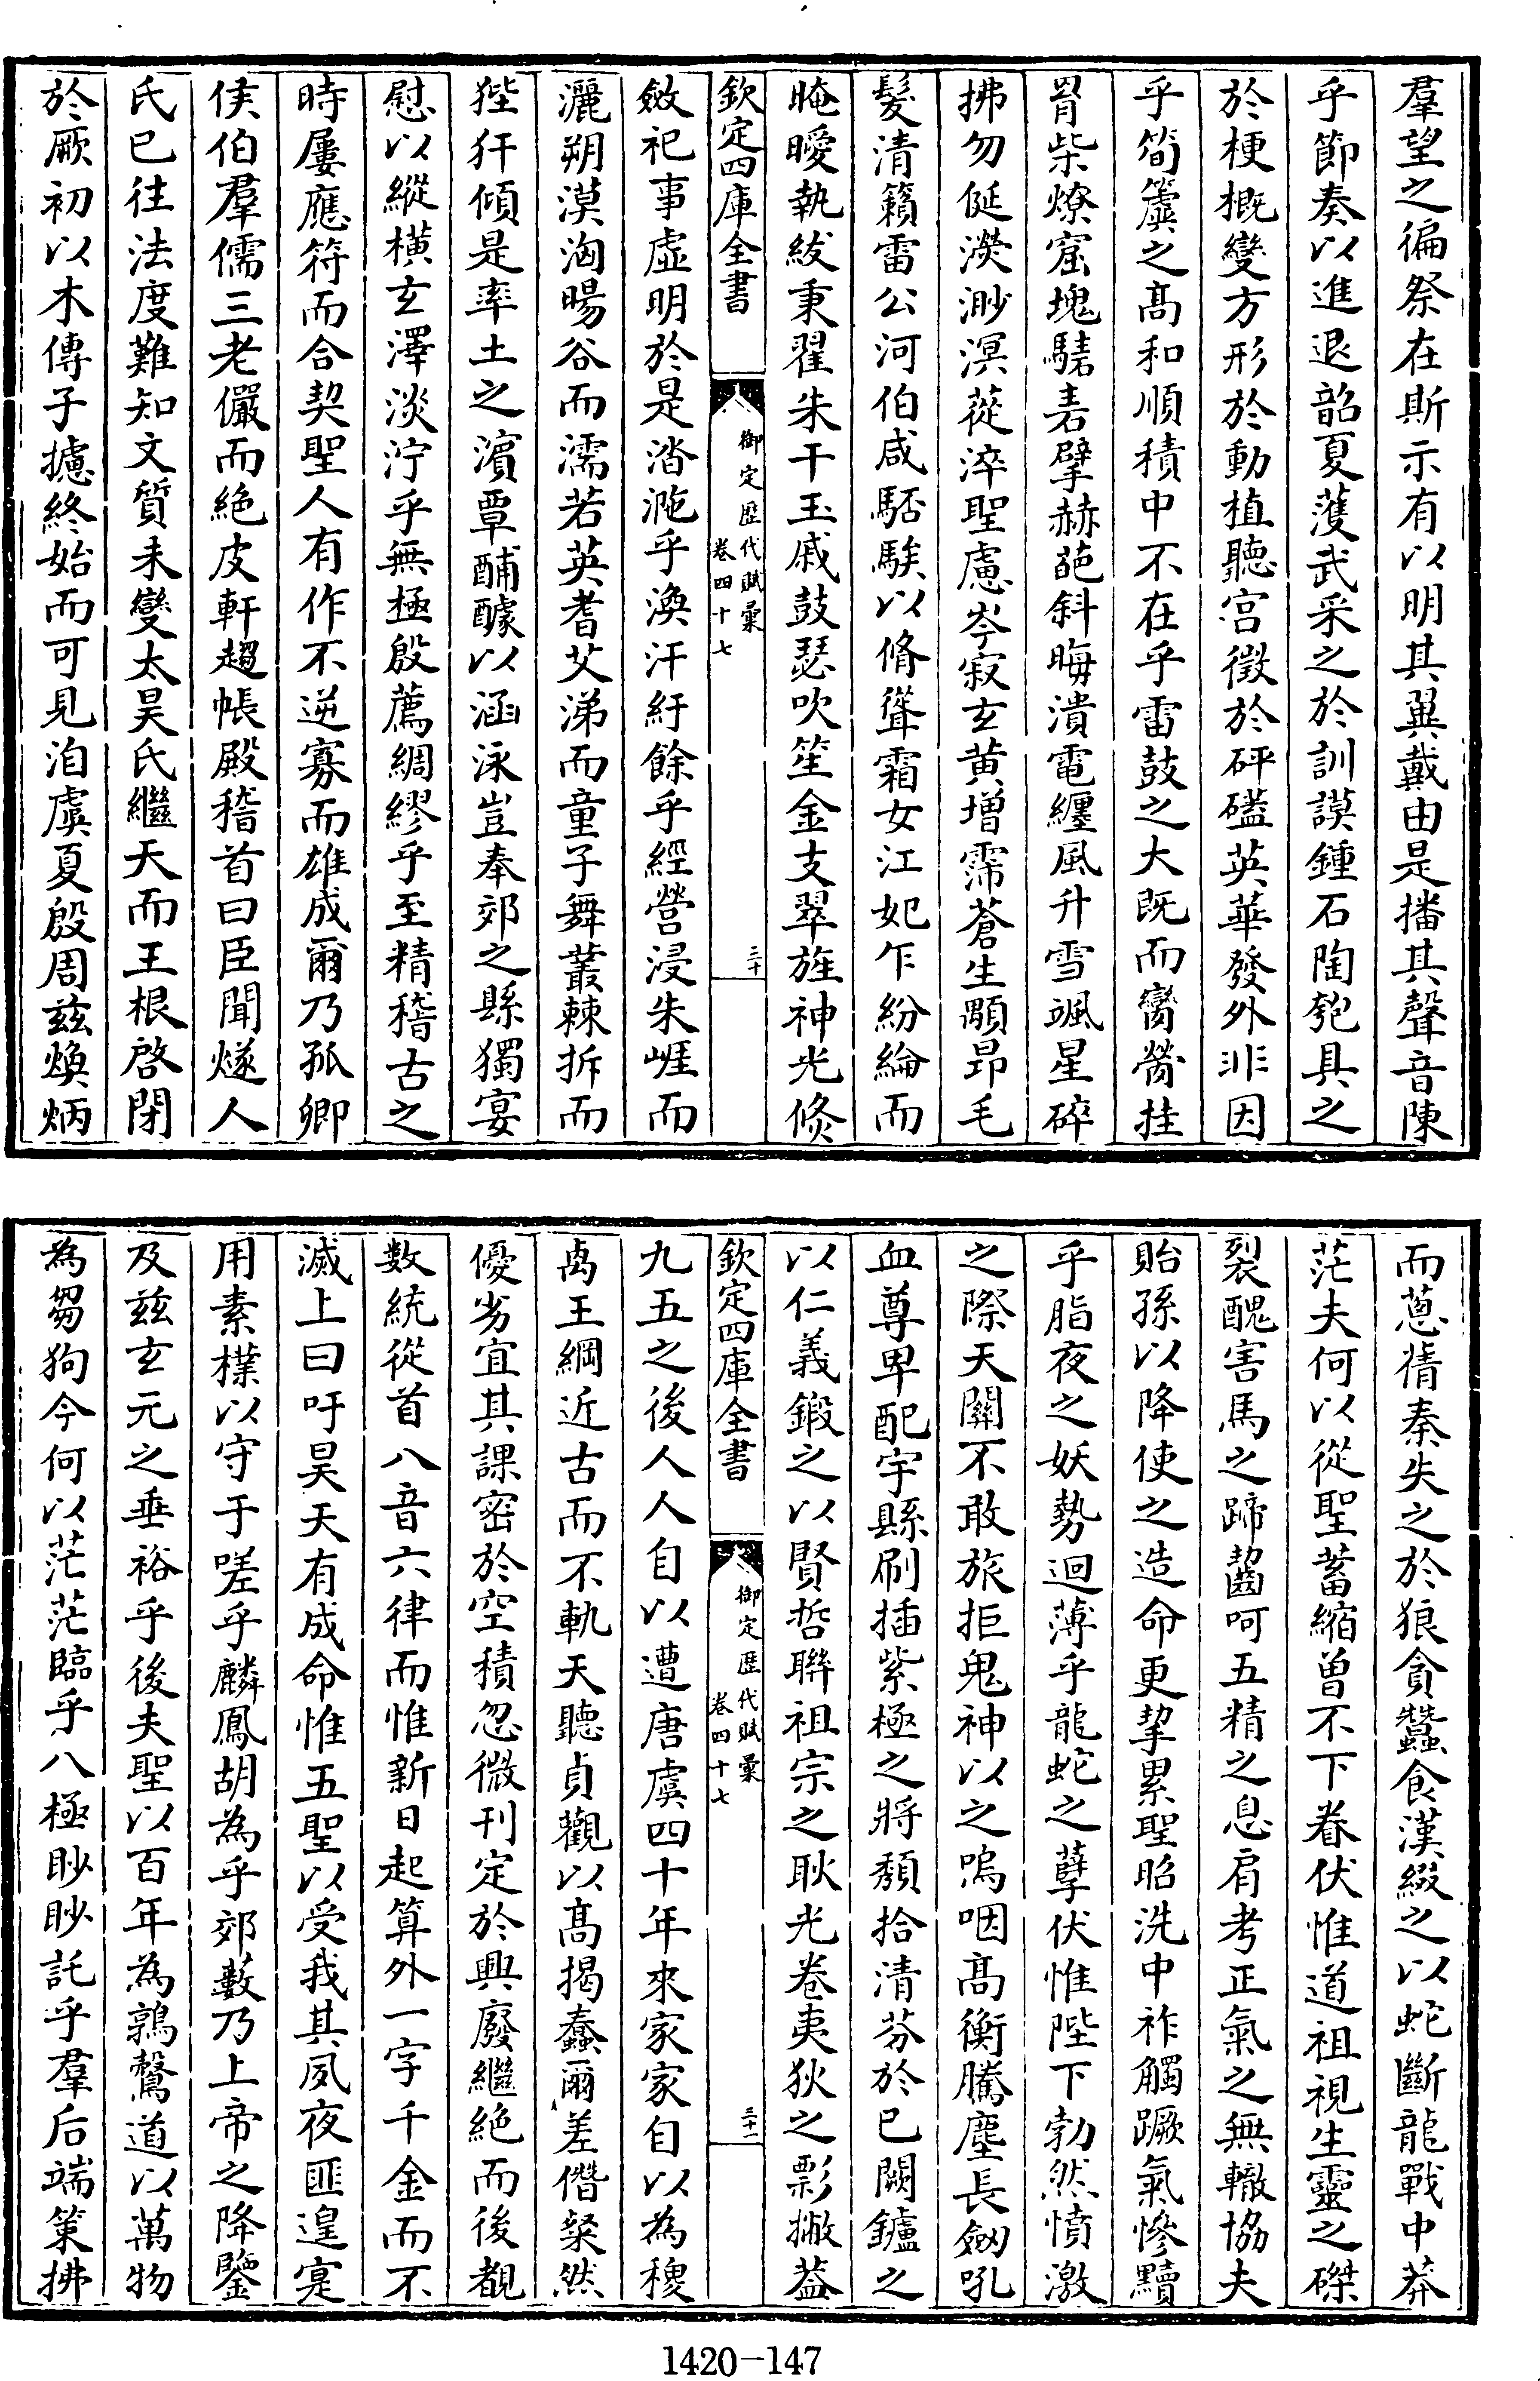 羣望之徧祭在斯示有以明其翼戴由是播其聲音陳
乎節奏以進退韶夏濩武采之於訓謨鍾石陶匏具之
於梗概變方形於動植聽宫徵於砰磕英華發外非因
乎筍簴之髙和順積中不在乎雷鼓之大既而臠膋挂
罥柴燎窟塊騞砉擘赫葩斜晦潰電纏風升雪颯星碎
拂勿侹㳿渺溟蓯淬聖慮岑寂玄黄增霈蒼生顒昻毛
髪清籟雷公河伯咸駓騃以脩聳霜女江妃乍紛綸而
晻曖執紱秉翟朱干玉戚鼓瑟吹笙金支翠旌神光倐
欽定四庫全書
御定歴代賦彙
卷四十七
三十
斂祀事虛明於是涾㴰乎渙汗紆餘乎經營浸朱崕而
灑朔漠洶暘谷而濡若英耆艾涕而童子舞叢棘拆而
狴犴傾是率土之濱覃酺醵以涵泳豈奉郊之縣獨宴
慰以縱横玄澤淡泞乎無極殷薦綢繆乎至精稽古之
時屢應符而合契聖人有作不逆寡而雄成爾乃孤卿
侯伯羣儒三老儼而絶皮軒趨帳殿稽首曰臣聞燧人
氏已往法度難知文質未變太昊氏繼天而王根啓閉
於厥初以木傳子攄終始而可見洎虞夏殷周兹煥炳
而蔥蒨秦失之於狼貪蠶食漢綴之以蛇斷龍戰中莽
茫夫何以從聖蓄縮曽不下眷伏惟道祖視生靈之磔
裂醜害馬之蹄齧呵五精之息肩考正氣之無轍協夫
貽孫以降使之造命更挈累聖昭洗中祚觸蹶氣慘黷
乎脂夜之妖勢迴薄乎龍蛇之孽伏惟陛下勃然憤激
之際天闕不敢旅拒鬼神以之嗚咽髙衡騰塵長劒吼
血尊卑配宇縣刷插紫極之將頹拾清芬於已闕鑪之
以仁義鍛之以賢哲聯祖宗之耿光卷夷狄之彯撇葢
欽定四庫全書
御定歴代賦彙
卷四十七
三十一
九五之後人人自以遭唐虞四十年來家家自以為稷
禼王綱近古而不軌天聽貞觀以髙揭蠢爾差僭粲然
優劣宜其課密於空積忽微刊定於興廢繼絶而後覩
數統從首八音六律而惟新日起算外一字千金而不
滅上曰吁昊天有成命惟五聖以受我其夙夜匪遑寔
用素樸以守于嗟乎麟鳳胡為乎郊藪乃上帝之降鑒
及兹玄元之垂裕乎後夫聖以百年為鶉鷇道以萬物
為芻狗今何以茫茫臨乎八極眇眇託乎羣后端策拂
1420-147